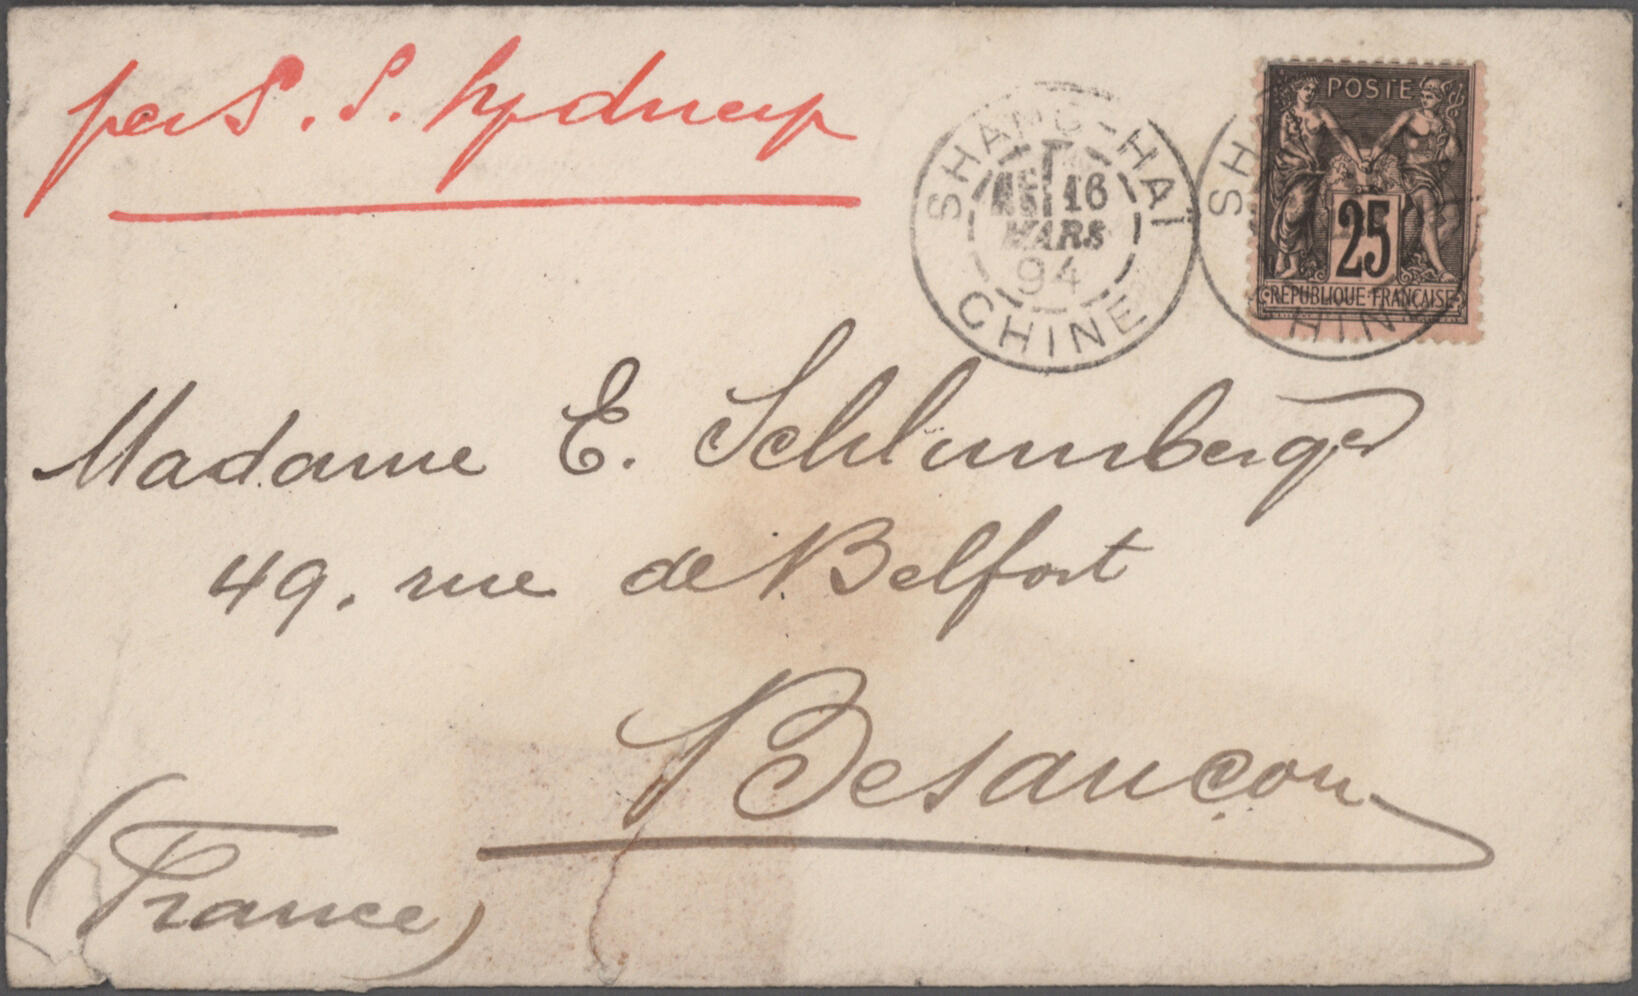 per S. S. Sydney
SHANG-HAI
16
MARS
94
CHINE
POSTE
25
REPUBLIQUE FRANCAISE
SH
HINE
Madame E. Schlumberger
49. rue de Belfort
Besançon
(France)